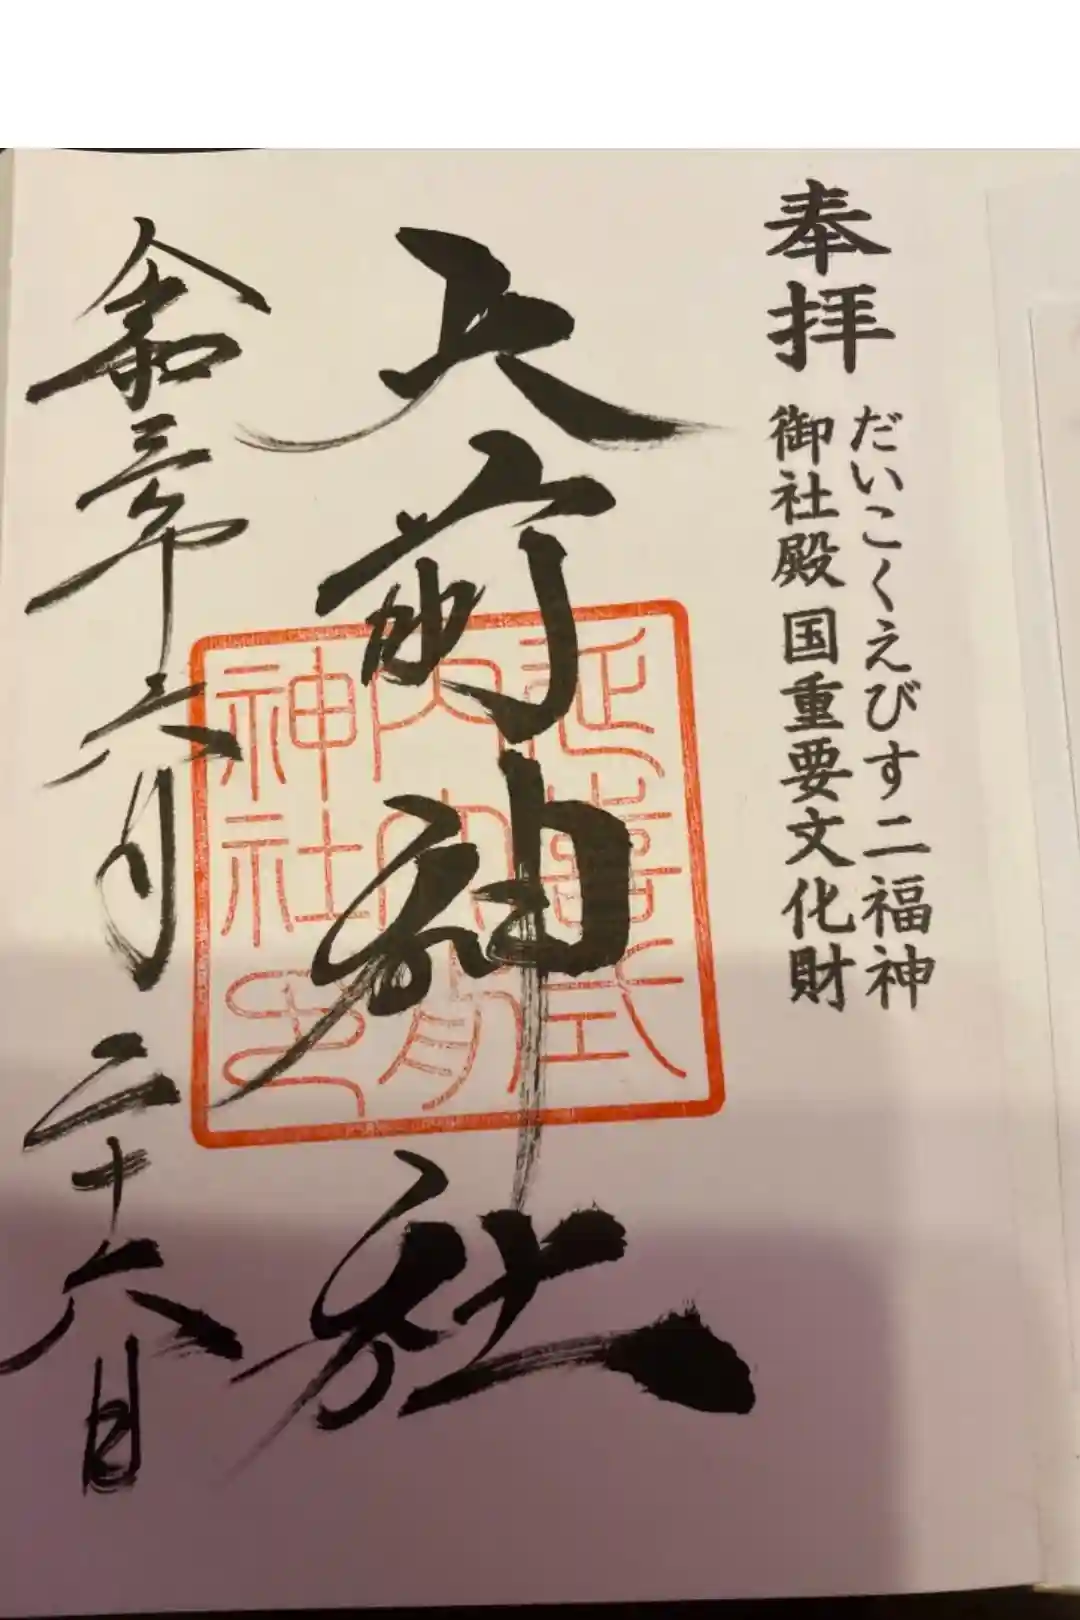 奉拝
だいこくえびす二福神
御社殿 国重要文化財
大前神社
延喜式
内大前
神社印
令和三年六月二十六日